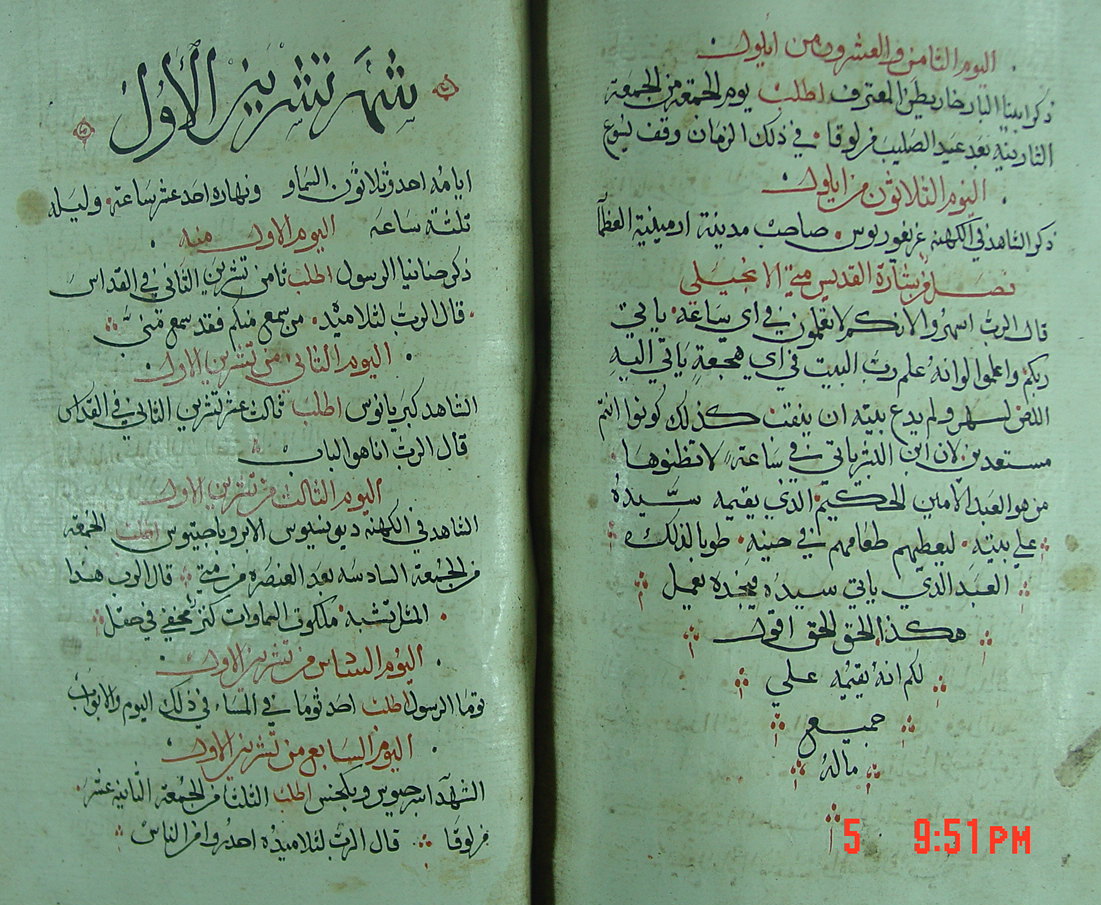 اليوم الثامن والعشرون من ايلول
ذكر ابينا البار خاريطن المعترف اطلب يوم الجمعة من الجمعة
الثانية بعد عيد الصليب من لوقا في ذلك الزمان وقف يسوع
اليوم الثلاثون من ايلول
ذكر الشاهد في الكهنة غريغوريوس صاحب مدينة ارمينية العظما
فصل من بشارة القديس متي الانجيلي
قال الرب اسهروا لانكم لا تعلمون في اي ساعة ياتي
ربكم واعلموا لو انه علم رب البيت في اي هجعة ياتي اليه
اللص لسهر ولم يدع بيته ان ينقب كذلك كونوا انتم
مستعدين لان ابن البشر ياتي في ساعة لا تظنوها
من هو العبد الامين الحكيم الذي يقيمه سيده
علي بيته ليعطيهم طعامهم في حينه طوبا لذلك
العبد الذي ياتي سيده فيجده يعمل
هكذا الحق الحق اقول
لكم انه يقيمه علي
جميع
ماله
5 9:51 PM
شهر تشرين الاول
ايامه احد وثلاثون السماو ونهاره احد عشر ساعة وليله
ثلثة ساعة اليوم الاول منه
ذكر حنانيا الرسول اطلب ثامن تشرين الثاني في القداس
قال الرب لتلاميذه من سمع منكم فقد سمع مني
اليوم الثاني من تشرين الاول
الشاهد كبريانوس اطلب ثالث عشر تشرين الثاني في القداس
قال الرب انا هو الباب
اليوم الثالث من تشرين الاول
الشاهد في الكهنة ديونيسيوس الاريوباجيتوس اطلب الجمعة
من الجمعة السادسه بعد العنصره من متي قال الرب هذا
المثل تشبه ملكوت السماوات كنز مخفي في حقل
اليوم السادس من تشرين الاول
توما الرسول اطلب احد توما في المساء في ذلك اليوم والابواب
اليوم السابع من تشرين الاول
الشهدا سرجيوس وبكخس اطلب الثلثا من الجمعة الثانية عشر
من لوقا قال الرب لتلاميذه احدروا من الناس